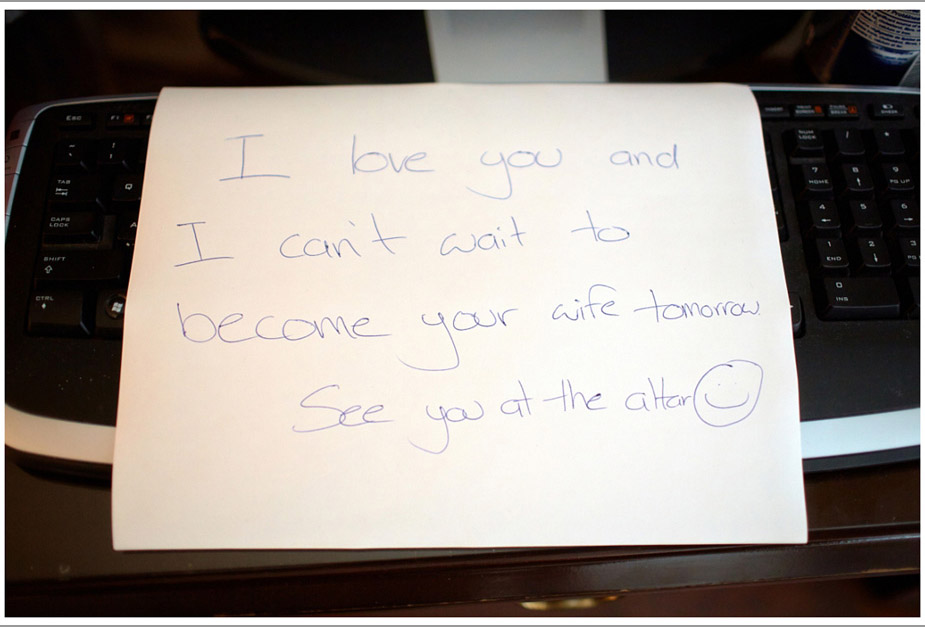 I love you and
I can't wait to
become your wife tomorrow.
See you at the altar
ESC
F1
TAB
Q
CAPS LOCK
A
SHIFT
CTRL
NUM LOCK
/
*
7 HOME
8
9 PG UP
4
5
6
1 END
2
3 PG
0 INS